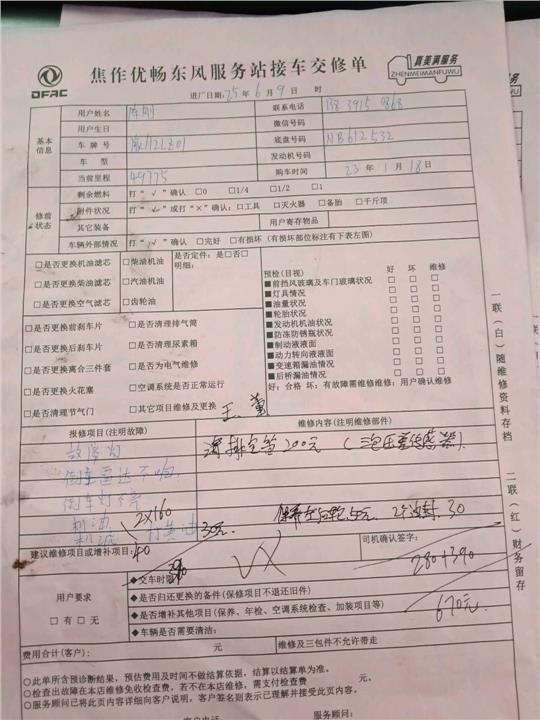 DFAC
焦作优畅东风服务站接车交修单
真美满服务
ZHENMEIMANFUWU
进厂日期:25年6月9日 时
基本信息
用户姓名 联系电话
用户生日 微信号码
车牌号 底盘号码 NB612532
车型 发动机号码
当前里程 49775 购车时间 23年1月18日
修前状态
剩余燃料 打"√"确认 □0 □1/4 □1/2 □1
附件状况 打"√"或打"×"确认:□工具 □灭火器 □备胎 □千斤顶
其它装备 用户寄存物品
车辆外部情况 打"√"确认 □完好 □有损坏 (有损坏部位标注有下表左图)
□是否更换机油滤芯 □柴油机油 是否定件:是□否□
明细:
□是否更换柴油滤芯 □汽油机油
□是否更换空气滤芯 □齿轮油
预检(目视) 好 坏 维修
■前挡风玻璃及车门玻璃状况 □ □ □
■灯具情况 □ □ □
■油量状况 □ □ □
■轮胎状况 □ □ □
■发动机机油状况 □ □ □
■防冻防锈瓶状况 □ □ □
■制动液液面 □ □ □
■动力转向液液面 □ □ □
■变速箱漏油情况 □ □ □
■后桥漏油情况 □ □ □
好:合格 坏:有故障需维修维修:用户确认维修
□是否更换前刹车片 □是否清理排气筒
□是否更换后刹车片 □是否清理尿素箱
□是否更换离合三件套 □是否为电气维修
□是否更换火花塞 □空调系统是否正常运行
□是否清理节气门 □其它项目维修及更换
报修项目(注明故障) 维修内容(注明维修部件)
200元
倒车雷达不响
倒车灯不亮
2×160
打黄油 30元
2个油封 30
建议维修项目或增补项目: 司机确认签字:
280+390
670元
用户要求
□有 □无
◆交车时限:
◆是否归还更换的备件(保修项目不退还旧件)
◆是否增补其他项目(保养、年检、空调系统检查、加装项目等)
◆车辆是否需要清洁:
费用合计(客户): 元 维修及三包件不允许带走
○此单所含预诊断结果,预估费用及时间不做结算依据,结算以结算单为准。
○检查出故障在本店维修免收检查费,若不在本店维修,需支付检查费 元。
○服务顾问已将此页内容详细向客户说明,客户签名则表示已理解并接受此页内容。
客户电话 服务顾问:
一联(白)随维修资料存档
二联(红)财务留存